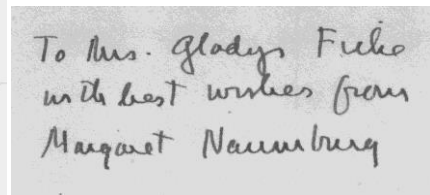 To Mrs. Gladys Ficke
with best wishes from
Margaret Naumburg